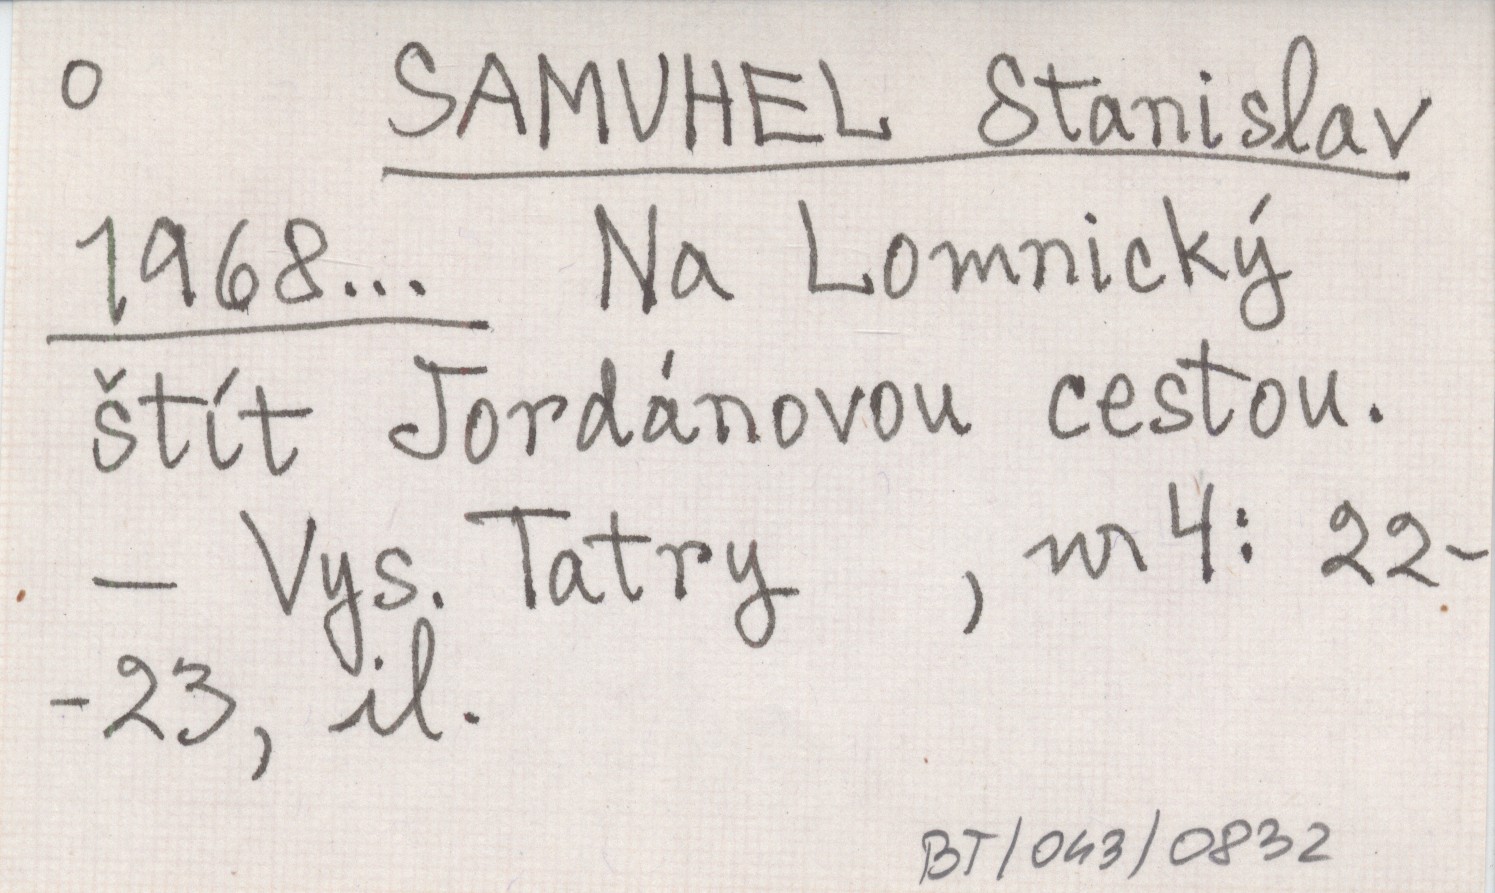 o SAMUHEL Stanislav
1968... Na Lomnický
štít Jordánovou cestou.
— Vys. Tatry , nr 4: 22-
-23, il.
BT/043/0832